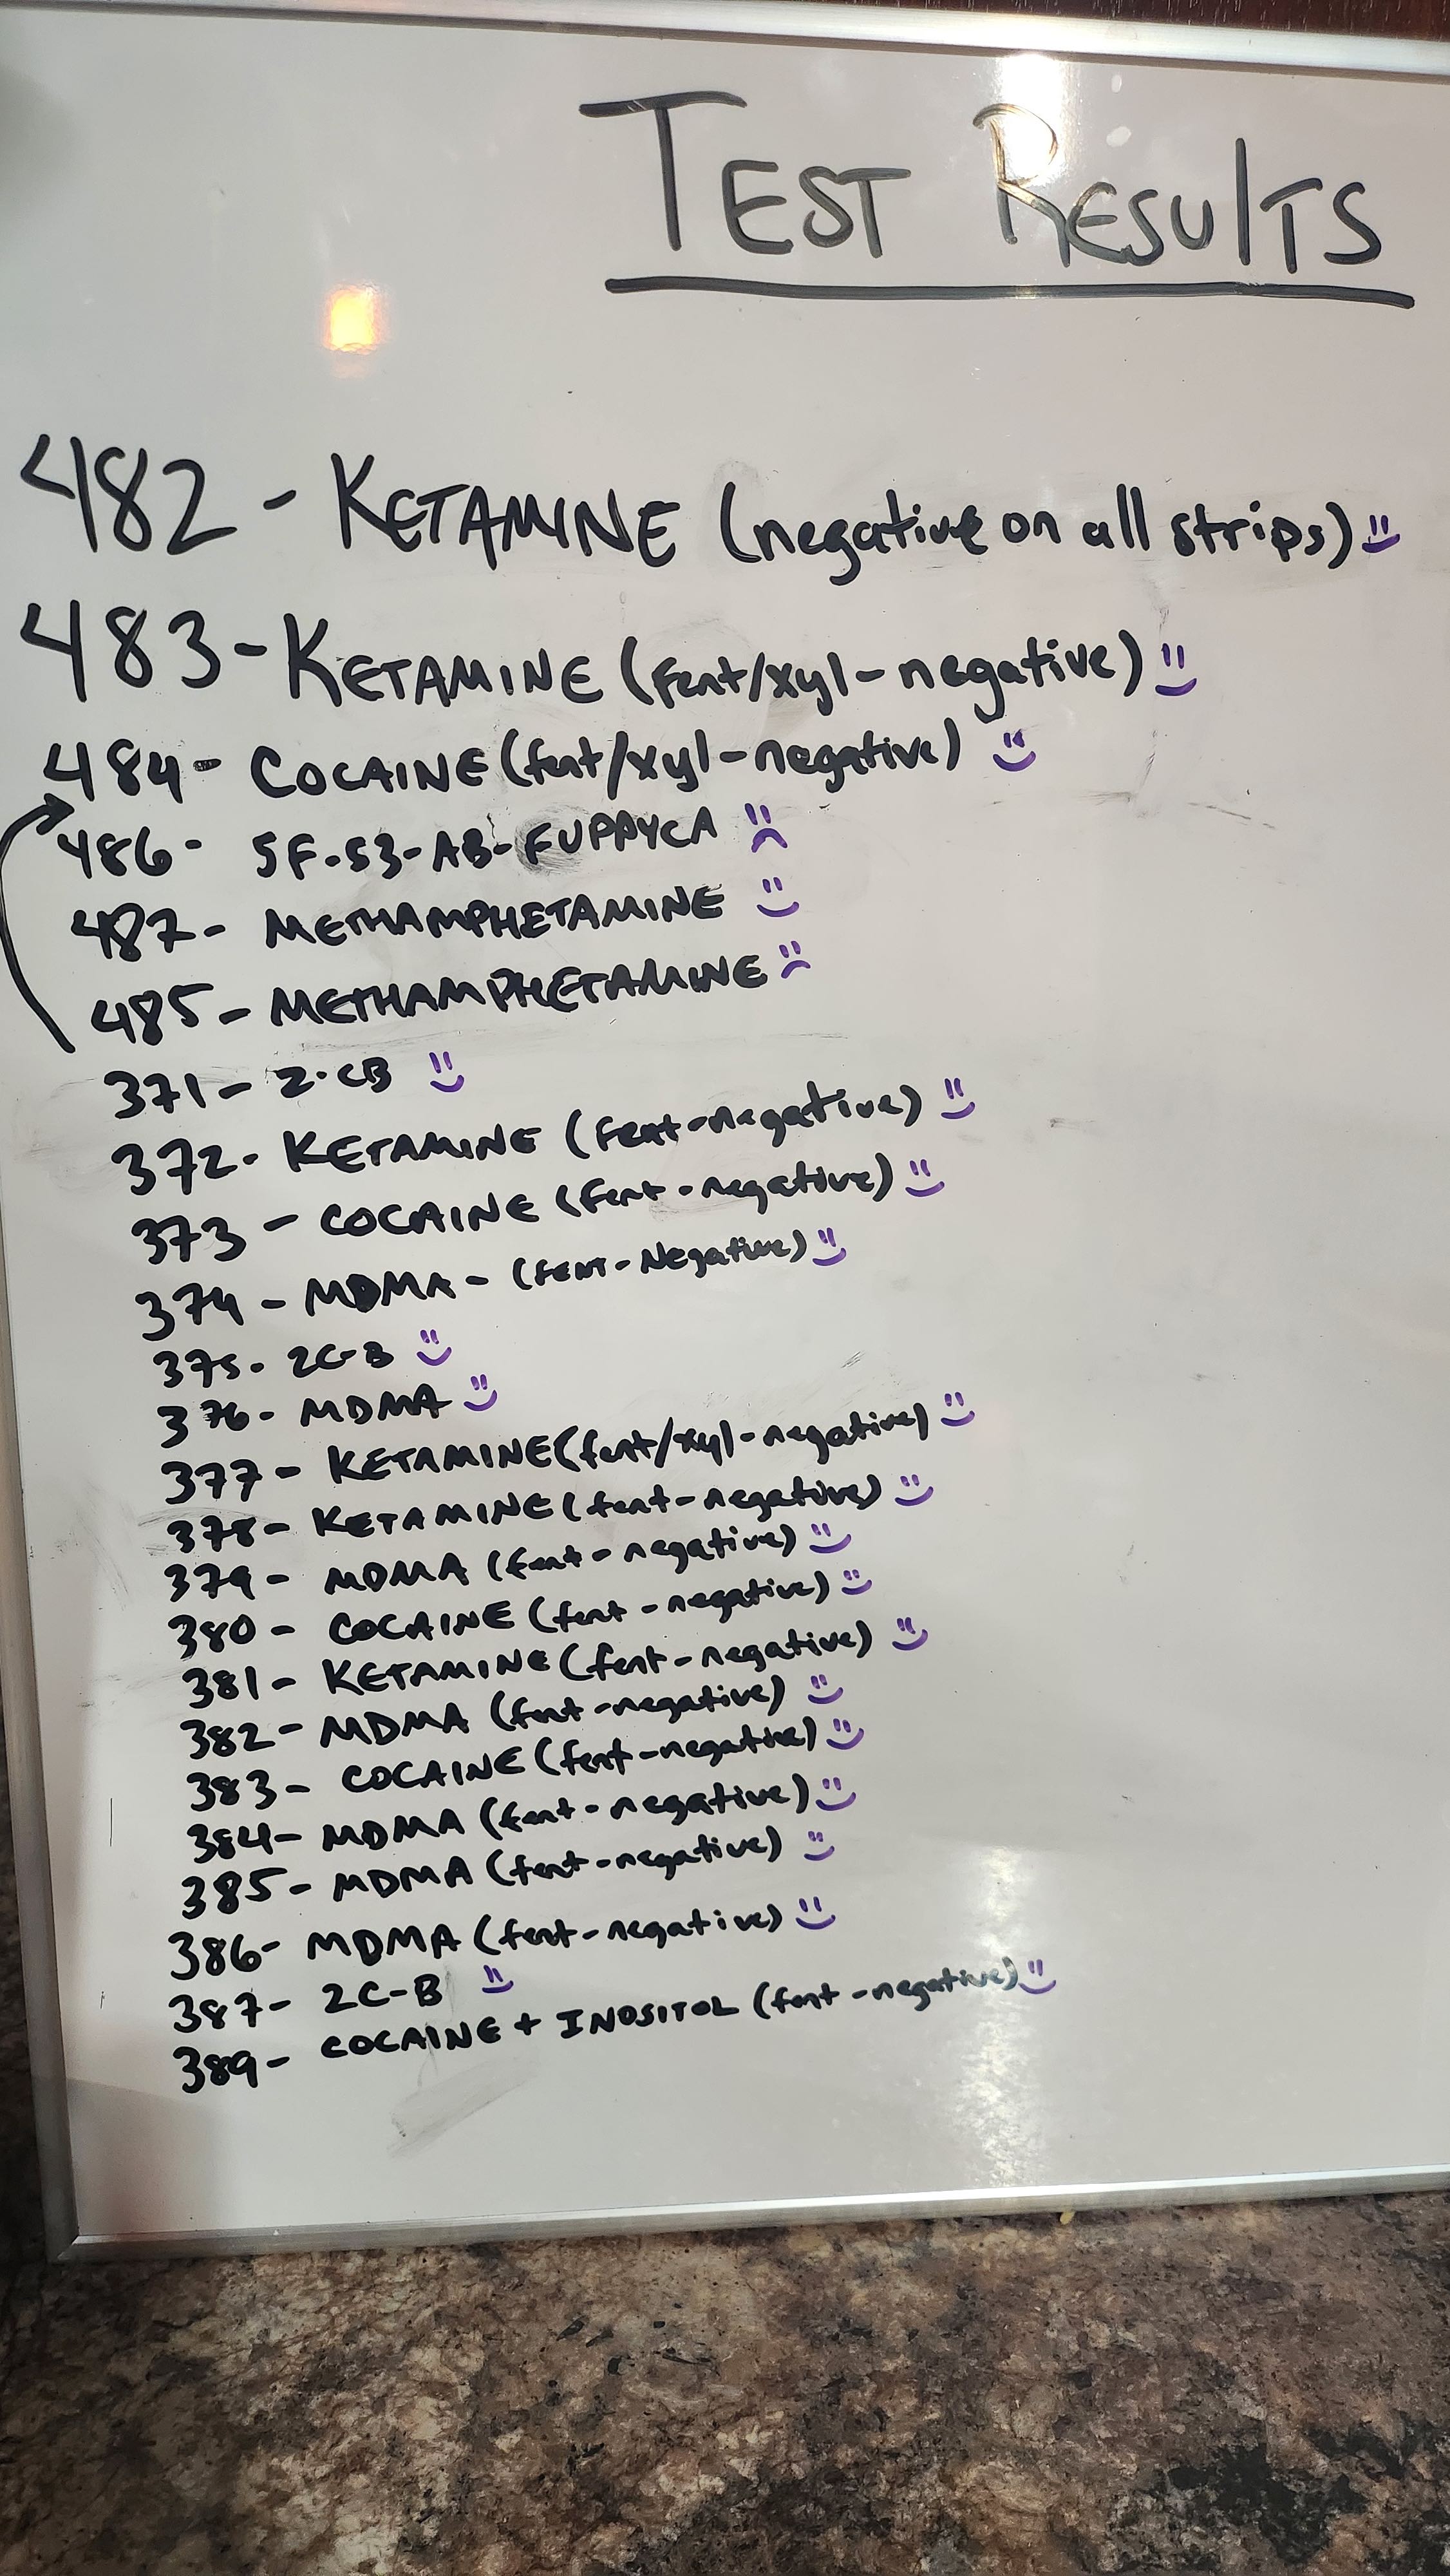 TEST RESULTS
482 - KETAMINE (negative on all strips)
483 - KETAMINE (fent/xyl - negative)
484 - COCAINE (fent/xyl - negative)
486 - 5F-53-AB-FUPPYCA
487 - METHAMPHETAMINE
485 - METHAMPHETAMINE
371 - 2-CB
372 - KETAMINE (fent - negative)
373 - COCAINE (fent - negative)
374 - MDMA - (FENT - Negative)
375 - 2C-B
376 - MDMA
377 - KETAMINE (fent/xyl - negative)
378 - KETAMINE (fent - negative)
379 - MDMA (fent - negative)
380 - COCAINE (fent - negative)
381 - KETAMINE (fent - negative)
382 - MDMA (fent - negative)
383 - COCAINE (fent - negative)
384 - MDMA (fent - negative)
385 - MDMA (fent - negative)
386 - MDMA (fent - negative)
387 - 2C-B
389 - COCAINE + INOSITOL (fent - negative)